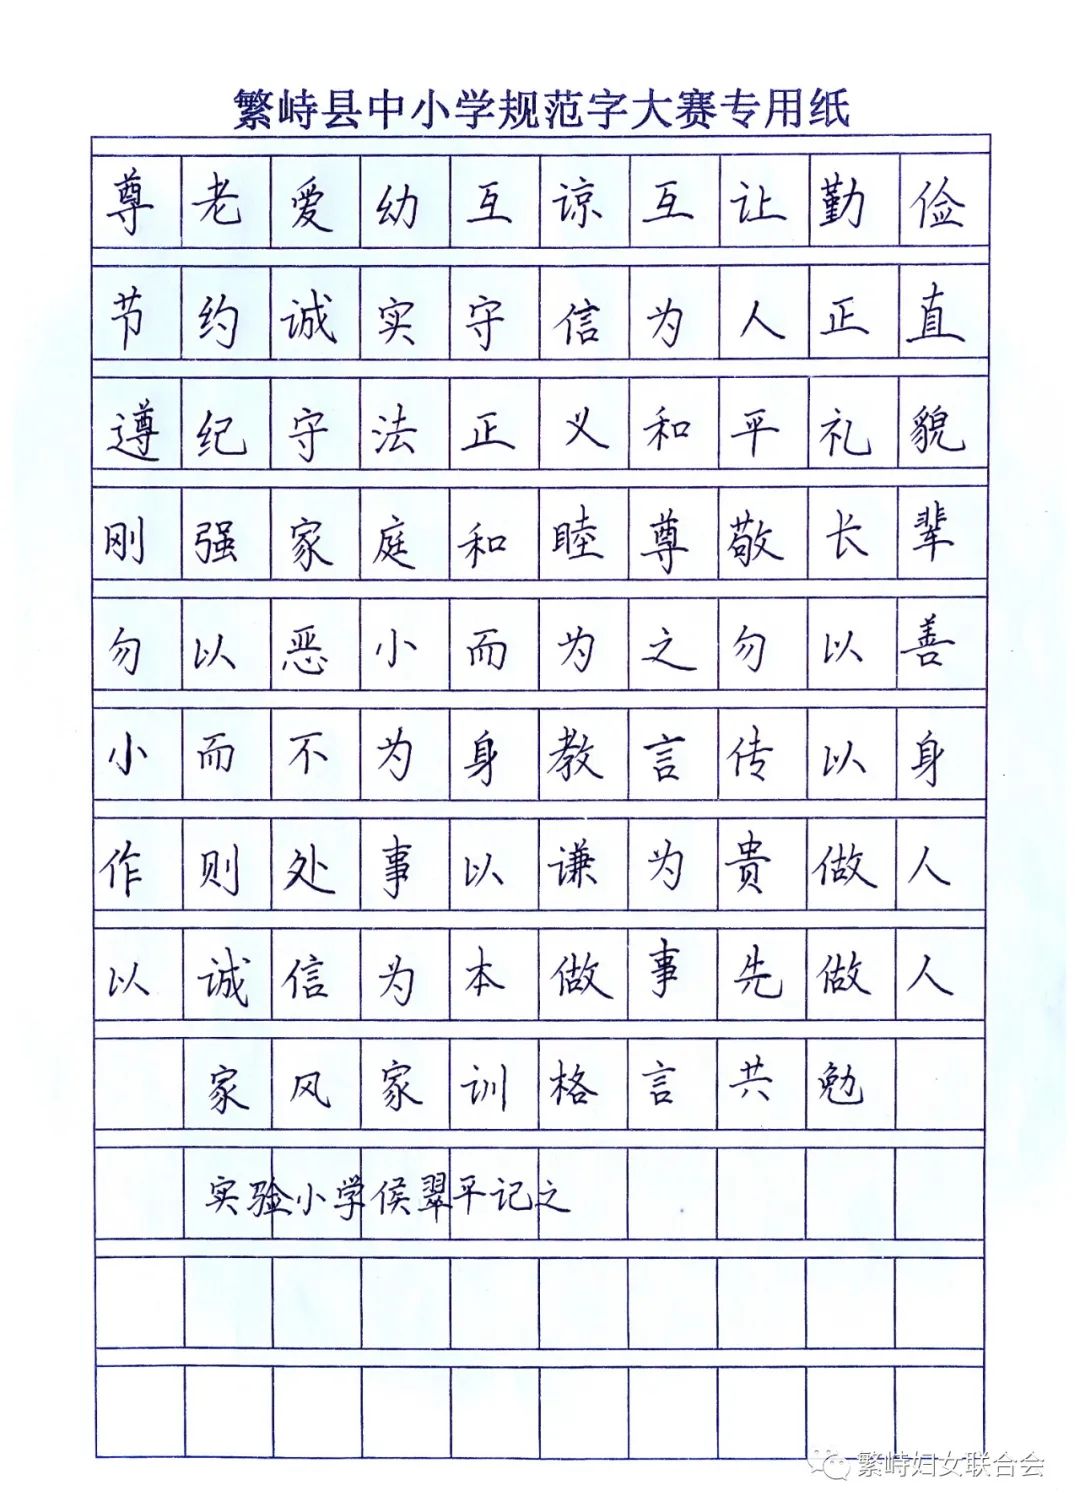 繁峙县中小学规范字大赛专用纸
尊老爱幼互谅互让勤俭
节约诚实守信为人正直
遵纪守法正义和平礼貌
刚强家庭和睦尊敬长辈
勿以恶小而为之勿以善
小而不为身教言传以身
作则处事以谦为贵做人
以诚信为本做事先做人
家风家训格言共勉
实验小学侯翠平记之
繁峙妇女联合会